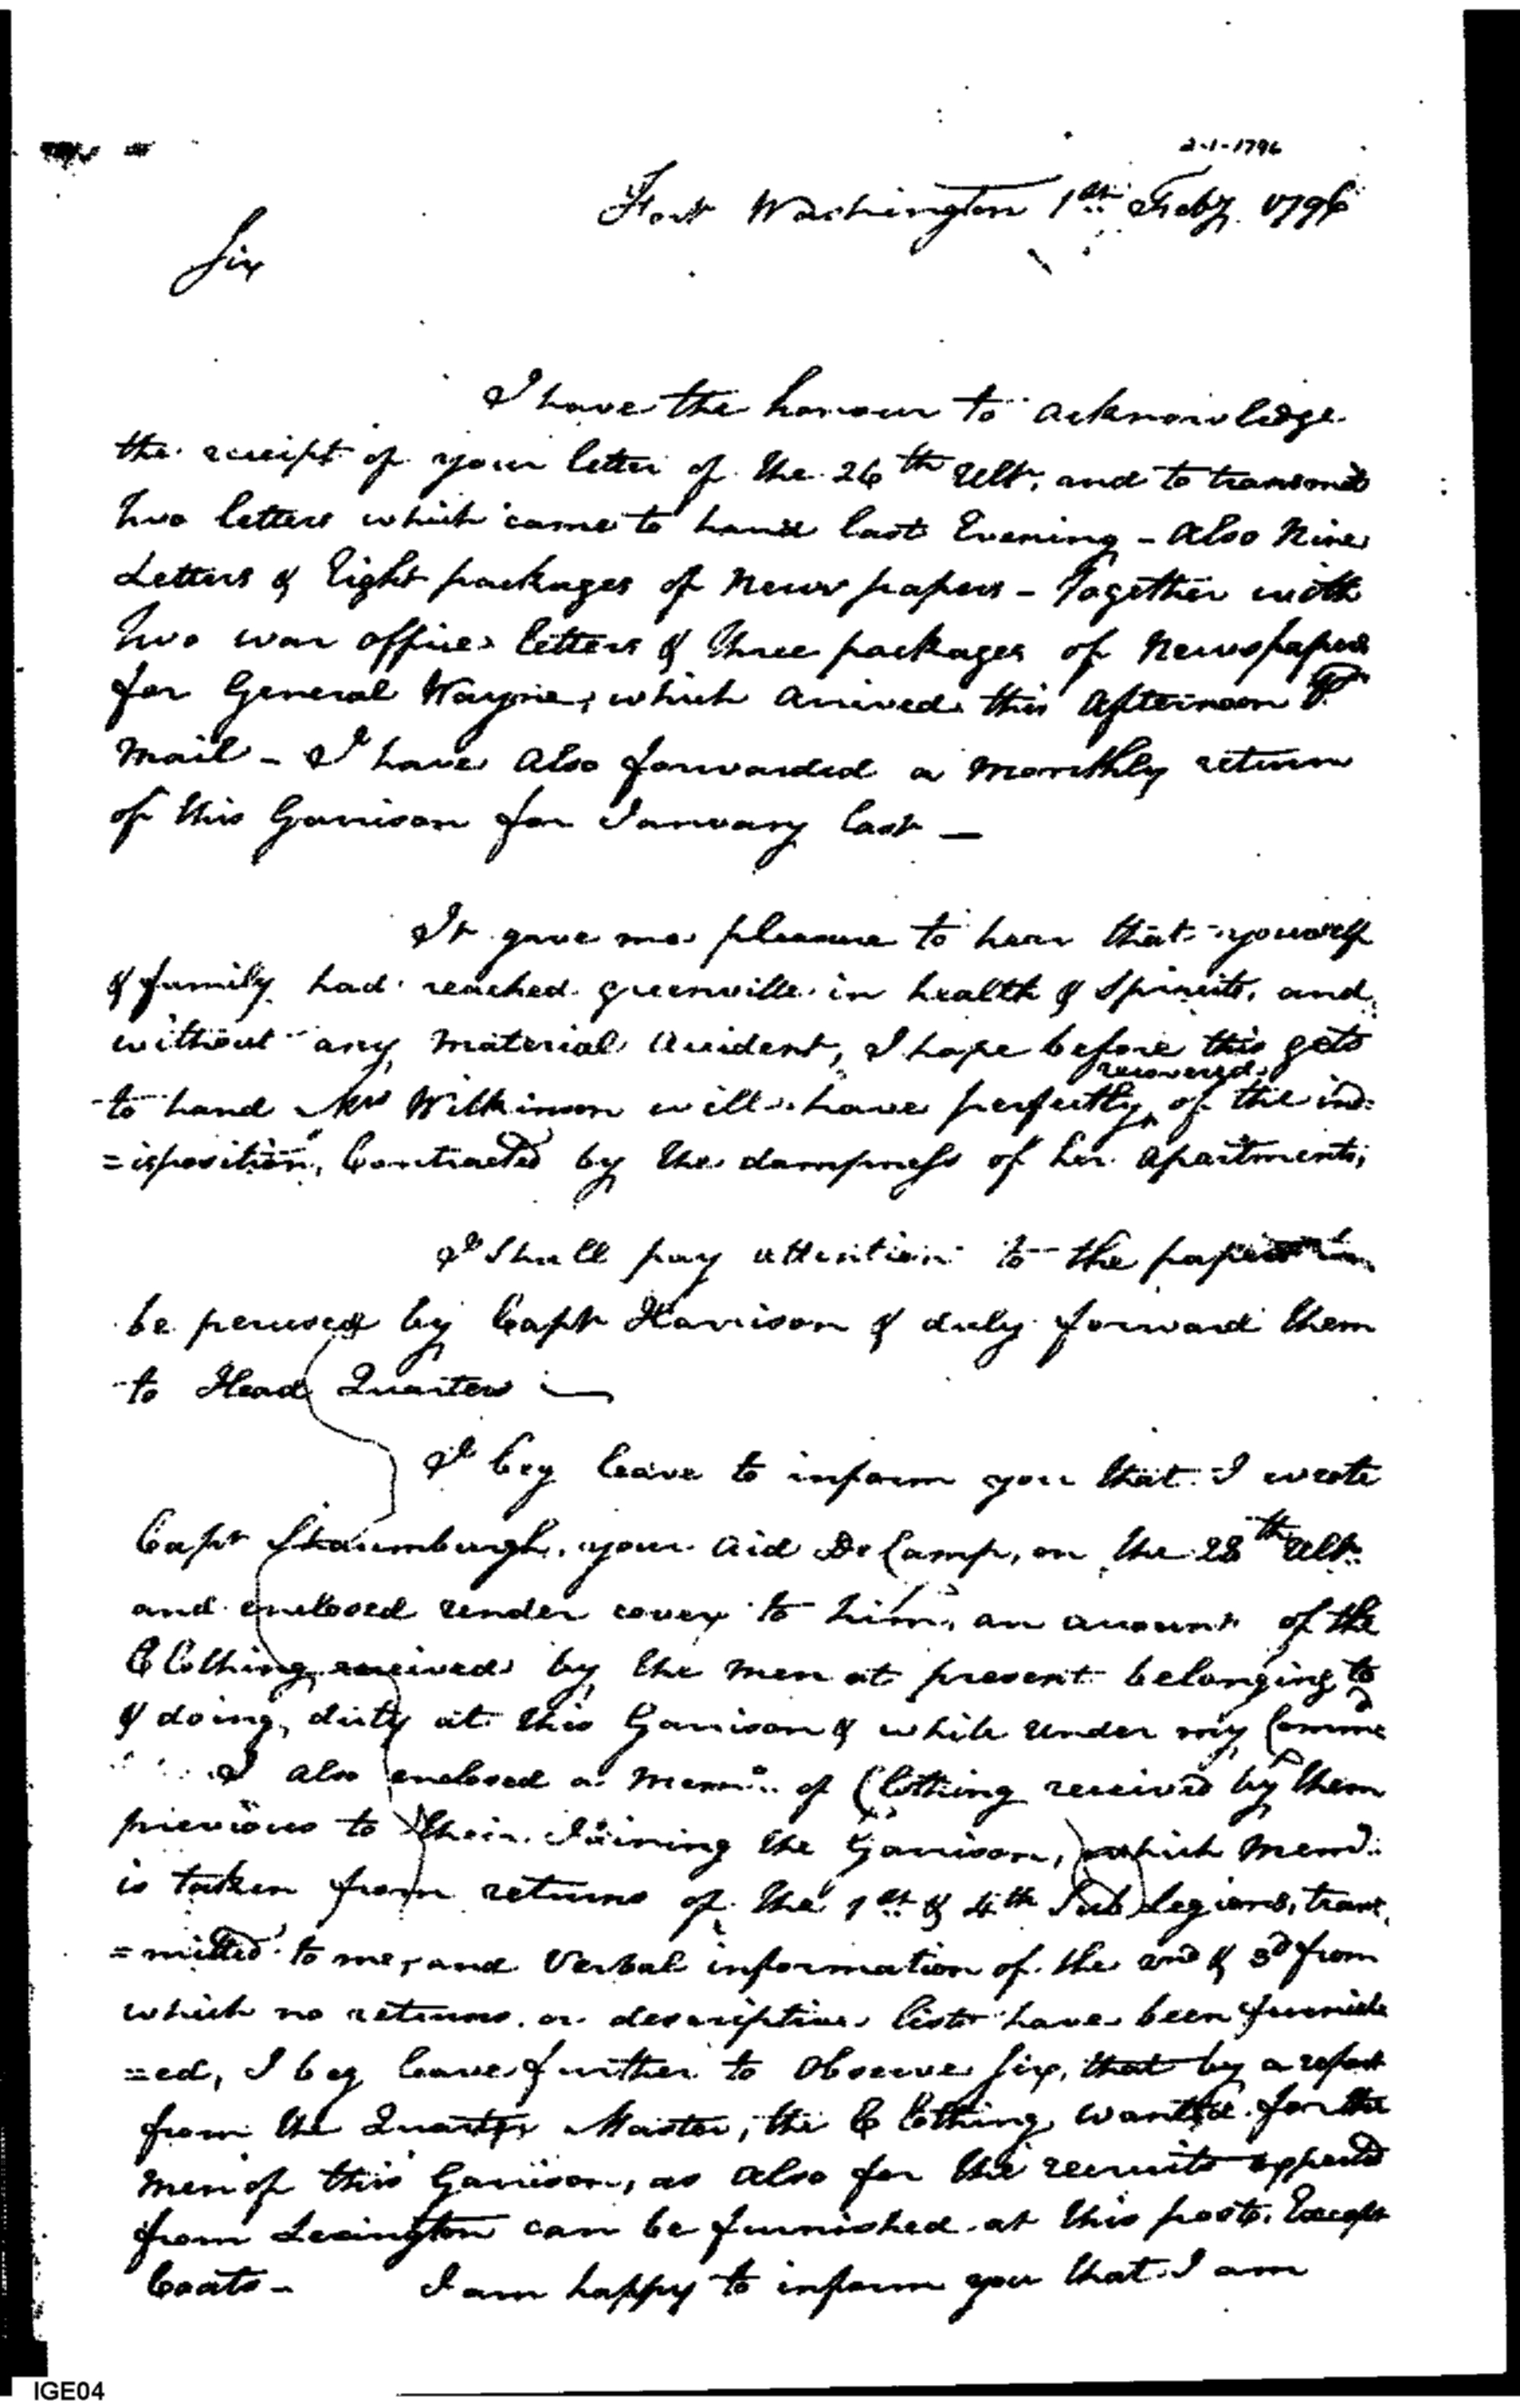 2-1-1796
Fort Washington 1st Feby. 1796
Sir
I have the honour to acknowledge
the receipt of your letter of the 26th Ult. and to transmit
two letters which came to hand last Evening - also Nine
Letters & Eight packages of News papers - Together with
Two war office letters & three packages of Newspapers
for General Wayne, which arived this afternoon P
Mail - I have also forwarded a Monthly return
of this Garrison for January last —
It gave me pleasure to hear that yourself
& family had reached greenville in health & Spirits, and
without any Material Accident, I hope before this gets
recovered
to hand Mrs Wilkinson will have perfectly of the ind=
=isposition, Contracted by the dampness of her apartments;
I Shall pay attention to the papers
be perused by Capt Harrison & duly forward them
to Head Quarters —
I beg leave to inform you that I wrote
Capt Shaumburgh, your Aid De Camp, on the 28th Ult.
and enclosed under cover to him, an account of the
Clothing received by the Men at present belonging to
& doing duty at this Garrison & while under my Commd
I also enclosed a Memo. of Clothing received by them
previous to their Joining the Garrison, which Memd.
is taken from returns of the 1st & 4th Sub Legions, trans
=mitted to me, and Verbal information of the 2nd & 3d from
which no returns or descriptive lists have been furnish
=ed, I beg leave further to Observe Sir, that by a report
from the Quarter Master, the Clothing wanted for the
Men of this Garrison, as also for the recruits expected
from Lexington can be furnished at this post. Except
Coats - I am happy to inform you that I am
IGE04